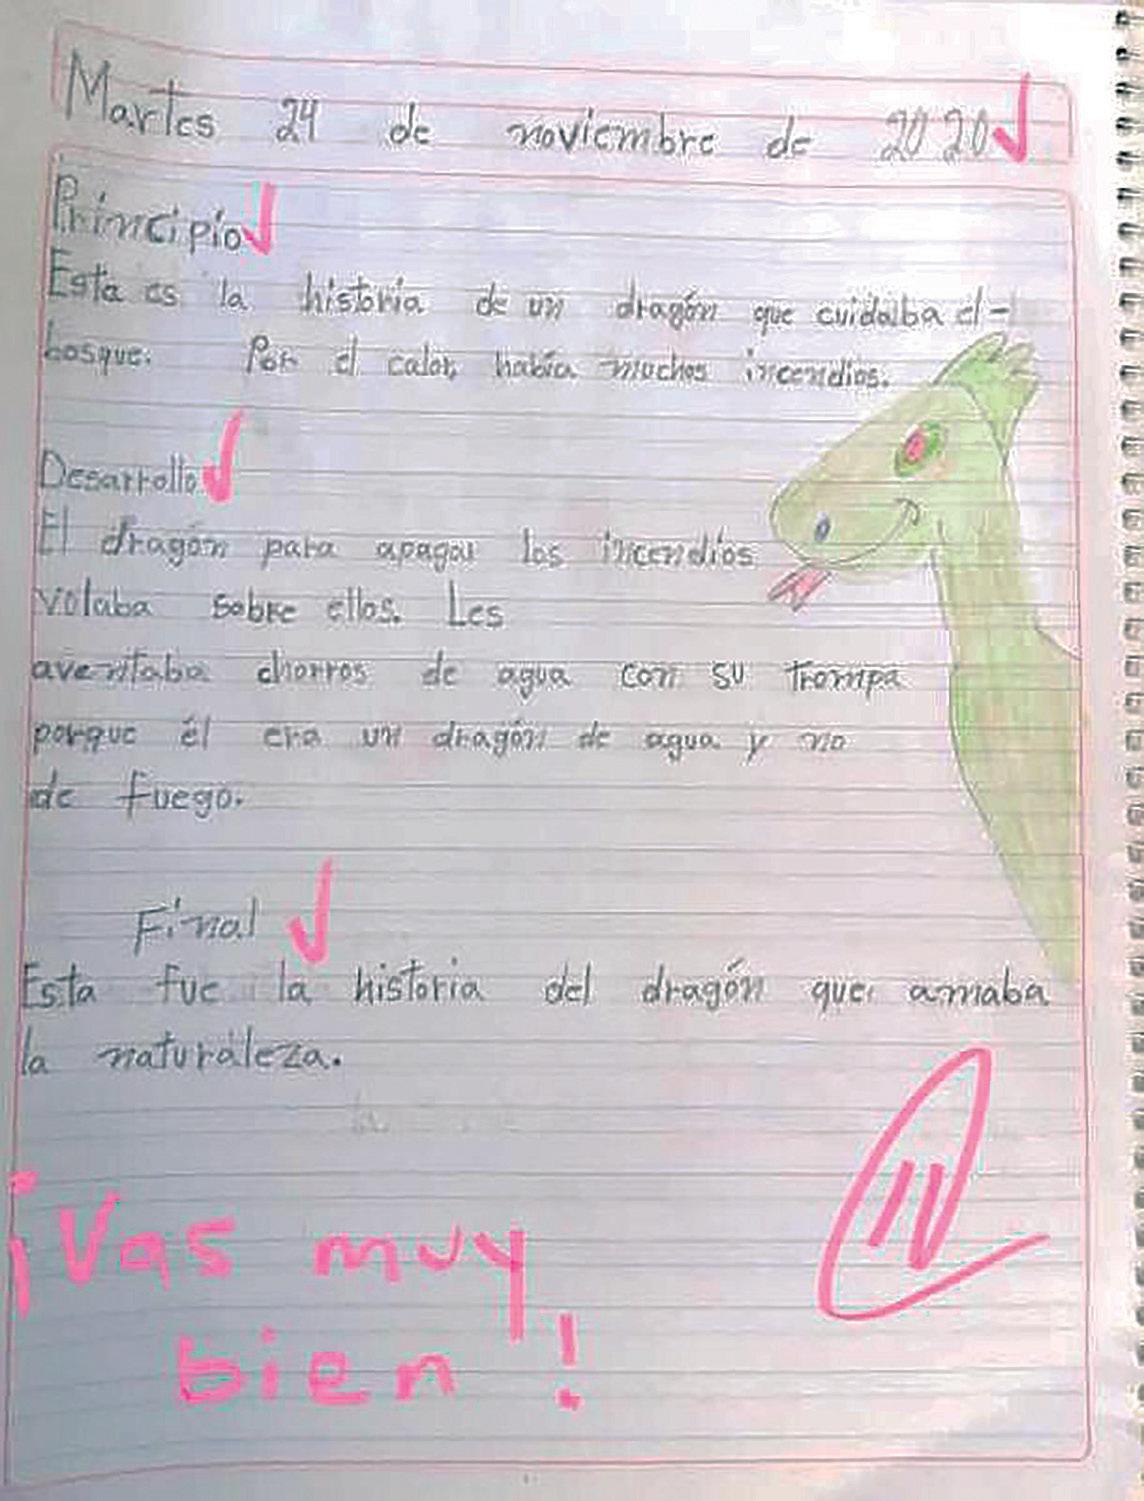 Martes 24 de noviembre de 2020
Principio
Esta es la historia de un dragón que cuidaba el
bosque. Por el calor, había muchos incendios.
Desarrollo
El dragón para apagar los incendios
volaba sobre ellos. Les
aventaba chorros de agua con su trompa
porque él era un dragón de agua y no
de fuego.
Final
Esta fue la historia del dragón que amaba
la naturaleza.
¡Vas muy
bien!